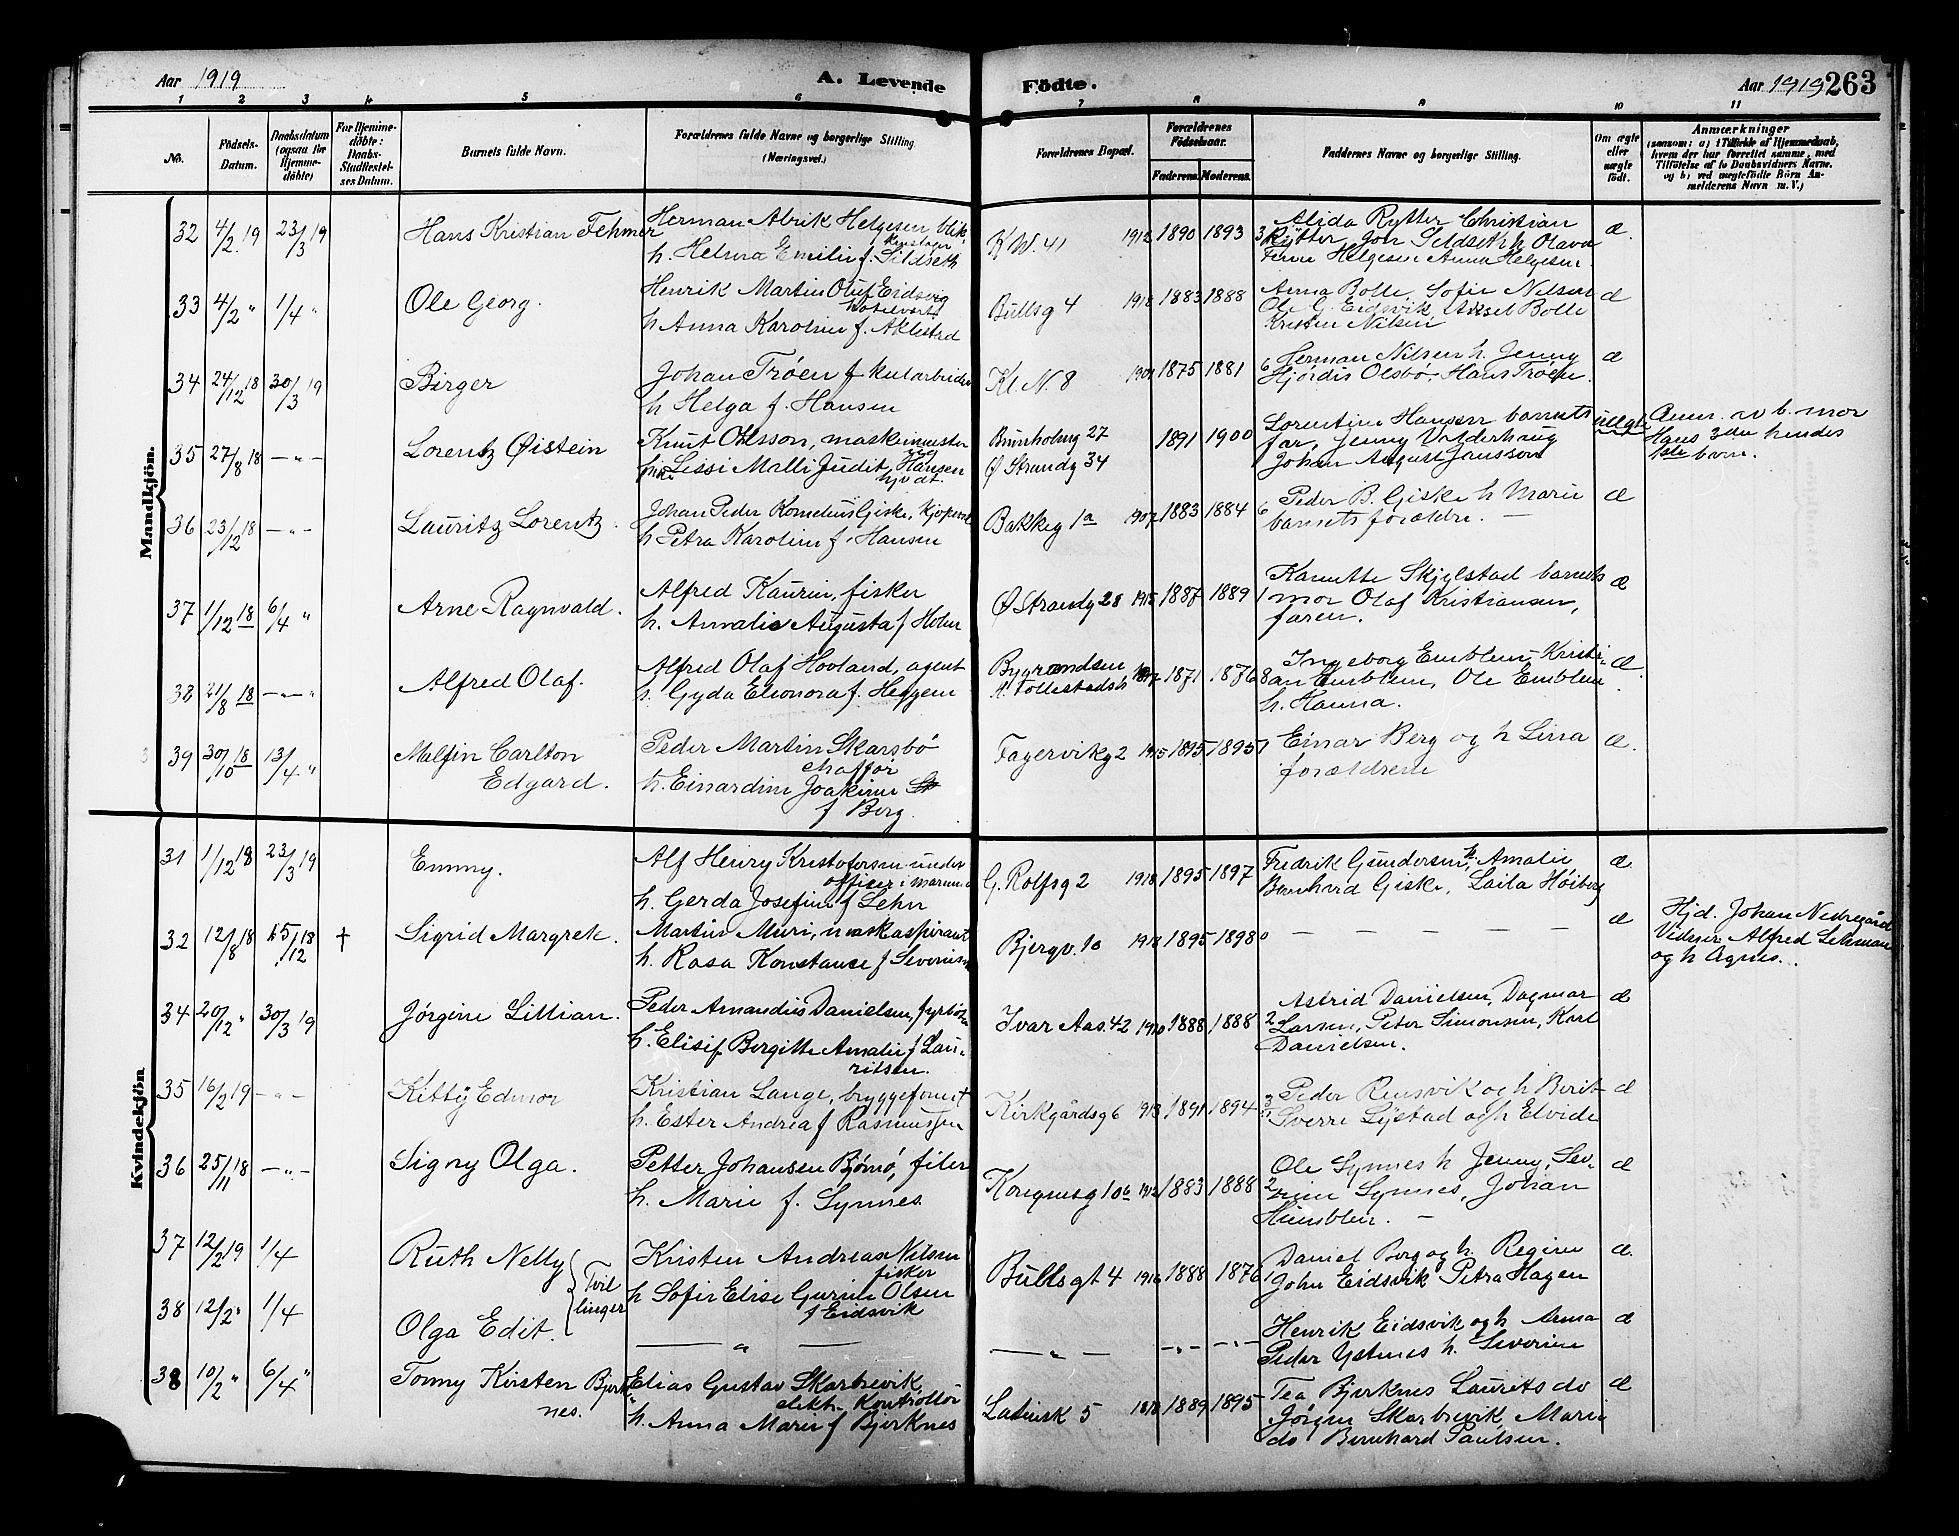 Aar 1919 A. Levende Födte. Aar 1919 263
1 2 3 4 5 6 7 8 9 10 11
No. Födsels-Datum. Daabsdatum (ogsaa for Hjemme-döbte) For Hjemme-döbte: Daabs-Stadfæstel-ses Datum. Barnets fulde Navn. Forældrenes fulde Navne og borgerlige Stilling (Næringsvei.) Forældrenes Bopæl. Forældrenes Födselsaar. Faderens. Moderens. Faddernes Navne og borgerlige Stilling. Om ægte eller uægte födt. Anmærkninger
(saasom: a) i Tilfælde af Hjemmedaab, hvem der har forrettet samme, med Tilföielse af to Daabsvidners Navne. og b) ved uægtefödte Börn An-melderens Navn m. V.)
Mandkjön.
32 4/2 19 23/3 19 Hans Kristian Fehmer Herman Alrik Helgesen, blik-
h. Helma Emilie f. Sildseth
K W. 41 1912 1890 1893 3 Alida Rytter Christian
Rytter, Jon Sildseth h Olava
Helgesen Anna Helgesen æ.
33 4/2 " 1/4 " Ole Georg. Henrik Martin Oluf Eidsvig
h Anna Karoline f. Aklestad
Bullsg 4 1918 1883 1888 Anna Bolle, Sofie Nilsen
Ole G. Eidsvik, Aksel Bolle
Kristen Nilsen æ
34 24/12 18 30/3 19 Birger Johan Trøen f kularbeider
h Helga f. Hansen
Kl N. 8 1901 1875 1881 6 Herman Nilsen h. Jenny
Hjördis Olsbö, Hans Trøen æ
35 27/8 18 — " — Lorentz Øistein Knut Olsson, maskinmester
pike Lissi Malli Judit Hansen
Bunholmg 27
Ø Strandg 34 1891 1900 Lorentine Hansen barnets
far, Jenny Valderhaug
Johan August Jonsson uægte Anm. av b. mor
Hans 3die hendes
1ste barn.
36 23/12 18 — " — Lauritz Lorentz. Johan Peder Kornelius Giske,
h Petra Karoline f. Hansen
Bakkeg 1a 1907 1883 1884 6 Peder B. Giske h Marie
barnets forældre. — æ
37 1/12 18 6/4 " Arne Ragnvald. Alfred Kaurin, fisker
h. Amalie Augusta f Holm
Ø Strandg 28 1915 1887 1889 1 Kanutte Skjelstad barnets
mor Olaf Kristiansen,
faren. æ
38 21/8 18 — " — Alfred Olaf. Alfred Olaf Hovland, agent
h. Gyda Eleonora f. Heggem
Bygrandsen
N. Tollestadsh 1897 1871 1876 8 Ingeborg Emblem, Kristi-
an Emblem, Ole Emblem
h. Hanna. æ.
39 30/10 18 13/4 " Malfin Carlton
Edgard. Peder Martin Skarsbö
chaffør
h. Einardine Joakime
f Berg.
Fagervikg 2 1915 1895 1895 1 Einar Berg og h Lina
forældrene æ.
Kvindekjön
31 1/12 18 23/3 19 Emmy. Alf Henry Kristofersen under-
officer i marinen
h. Gerda Josefine f Lehn
G. Rolfsg 2 1918 1895 1897 Fredrik Gundersen, h Amalie
Bernhard Giske, Laila Höiberg æ
32 12/8 18 25/12 18 † Sigrid Margrete. Martin Muri, maskaspirant
h. Rosa Konstanse f Severinsen
Bjergv. 10 1918 1895 1898 0 — — — — — æ Hjd. Johan Nedregård
Vidner Alfred Lehmann
og h Agnes.
34 20/12 " 30/3 19 Jørgine Lillian. Peder Amandus Danielsen, fyrböter
h. Elisif Bergitte Amalie f Lau-
ritsen.
Ivar Aas. 42 1910 1888 1888 2 Astrid Danielsen, Dagmar
Larsen, Peter Simonsen, Karl
Danielsen. æ
35 16/2 19 — " — Kitty Edmor Kristian Lange, bryggeformt
h. Ester Andrea f Rasmussen
Kirkgårdsg 6 1913 1891 1894 3 Peder Remsvik og h Berit
Sverre Lystad og h Elvide æ
36 25/11 18 — " — Signy Olga. Petter Johansen Bjørnö, filer
h. Marie f. Synnes.
Kongensg 10b 1912 1883 1888 2 Ole Synnes h Jenny, Sev-
rine Synnes, Johan
Humblen. — æ
37 12/2 19 1/4 Ruth Nelly Tvil-
linger Kristen Andreas Nilsen
fisker
h Sofie Elise Gurine Olsen
f Eidsvik
Bullsgt 4 1916 1888 1876 1 Daniel Berg og h. Regine
John Eidsvik Petra Hagen æ.
38 12/2 " 1/4 Olga Edit. — " — — " — — " — — " — Henrik Eidsvik og h Anna
Peder Ystenes h. Severine æ
38 10/2 " 6/4 " Tommy Kirsten Bjerk-
nes. Elias Gustav Skarbrevik,
elektr. Kontrollör
h. Anna Marie f Bjerknes
Latinsk 5 1918 1889 1895 Tea Bjerknes Laurits do
Jørgen Skarbrevik, Marie
do Bernhard Paulsen. æ